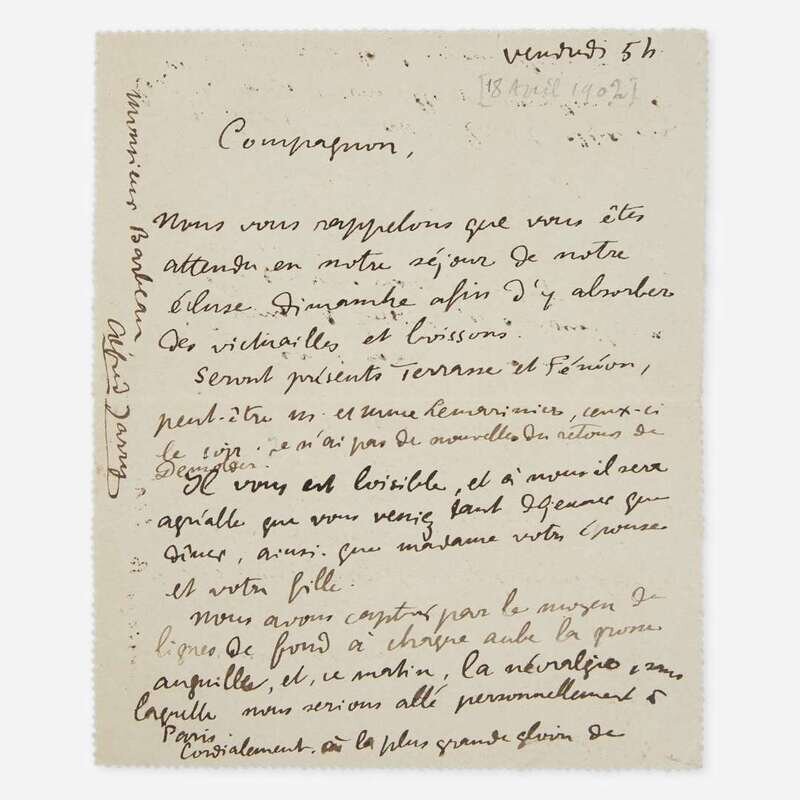 vendredi 5 h
[18 Avril 1902]
Compagnon,
Nous vous rappelons que vous êtes
attendu en notre séjour de notre
écluse dimanche afin d'y absorber
des victuailles et boissons.
Seront présents Terrasse et Fénéon,
peut-être m. et mme Lemarinier, ceux-ci
le soir. Je n'ai pas de nouvelles du retour de
Demolder.
Il vous est loisible, et à nous il sera
agréable que vous veniez tant déjeuner que
dîner, ainsi que madame votre épouse
et votre fille.
Nous avons capturé par le moyen de
lignes de fond à chaque aube la grosse
anguille, et, ce matin, la névralgie, sans
laquelle nous serions allé personnellement à
Paris.
Cordialement. à la plus grande gloire de
Monsieur Barbeau
Alfred Jarry